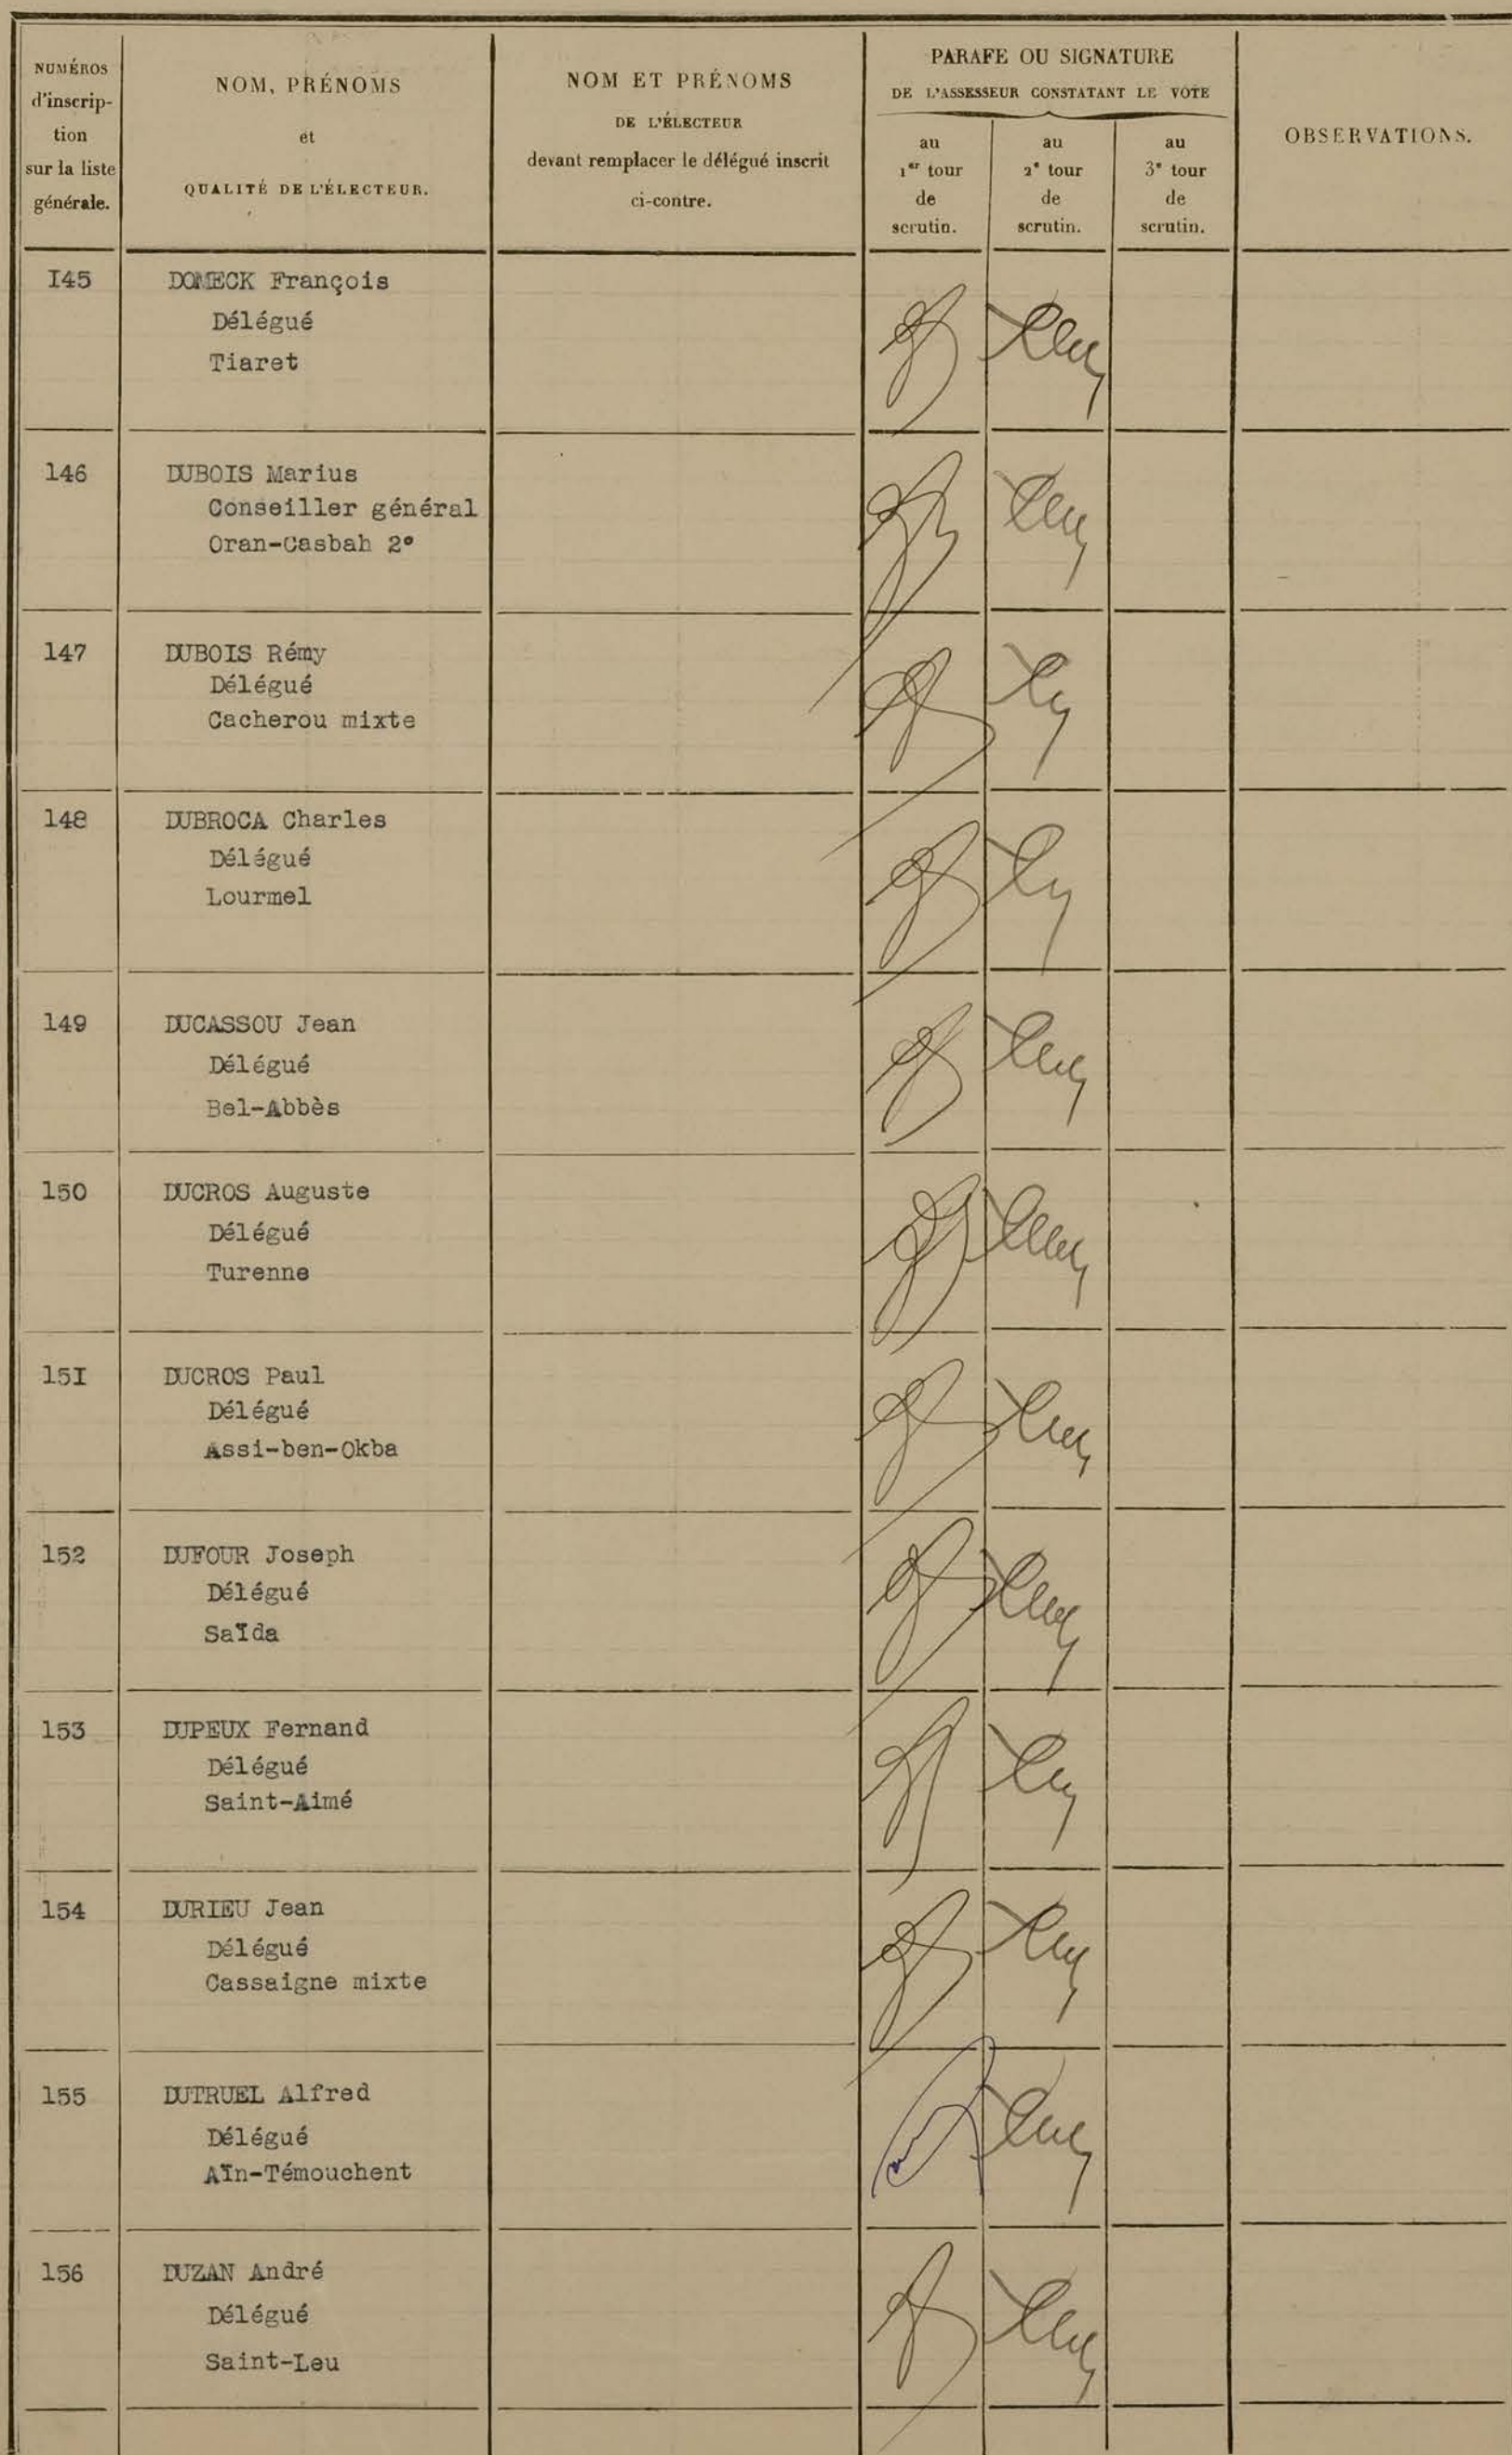 NUMÉROS
d'inscrip-
tion
sur la liste
générale.
NOM, PRÉNOMS
et
QUALITÉ DE L'ÉLECTEUR.
NOM ET PRÉNOMS
DE L'ÉLECTEUR
devant remplacer le délégué inscrit
ci-contre.
PARAFE OU SIGNATURE
DE L'ASSESSEUR CONSTATANT LE VOTE
au
1er tour
de
scrutin.
au
2e tour
de
scrutin.
au
3e tour
de
scrutin.
OBSERVATIONS.
I45 DOMECK François
Délégué
Tiaret
146 DUBOIS Marius
Conseiller général
Oran-Casbah 2°
147 DUBOIS Rémy
Délégué
Cacherou mixte
148 DUBROCA Charles
Délégué
Lourmel
149 DUCASSOU Jean
Délégué
Bel-Abbès
150 DUCROS Auguste
Délégué
Turenne
15I DUCROS Paul
Délégué
Assi-ben-Okba
152 DUFOUR Joseph
Délégué
Saïda
153 DUPEUX Fernand
Délégué
Saint-Aimé
154 DURIEU Jean
Délégué
Cassaigne mixte
155 DUTRUEL Alfred
Délégué
Aïn-Témouchent
156 DUZAN André
Délégué
Saint-Leu